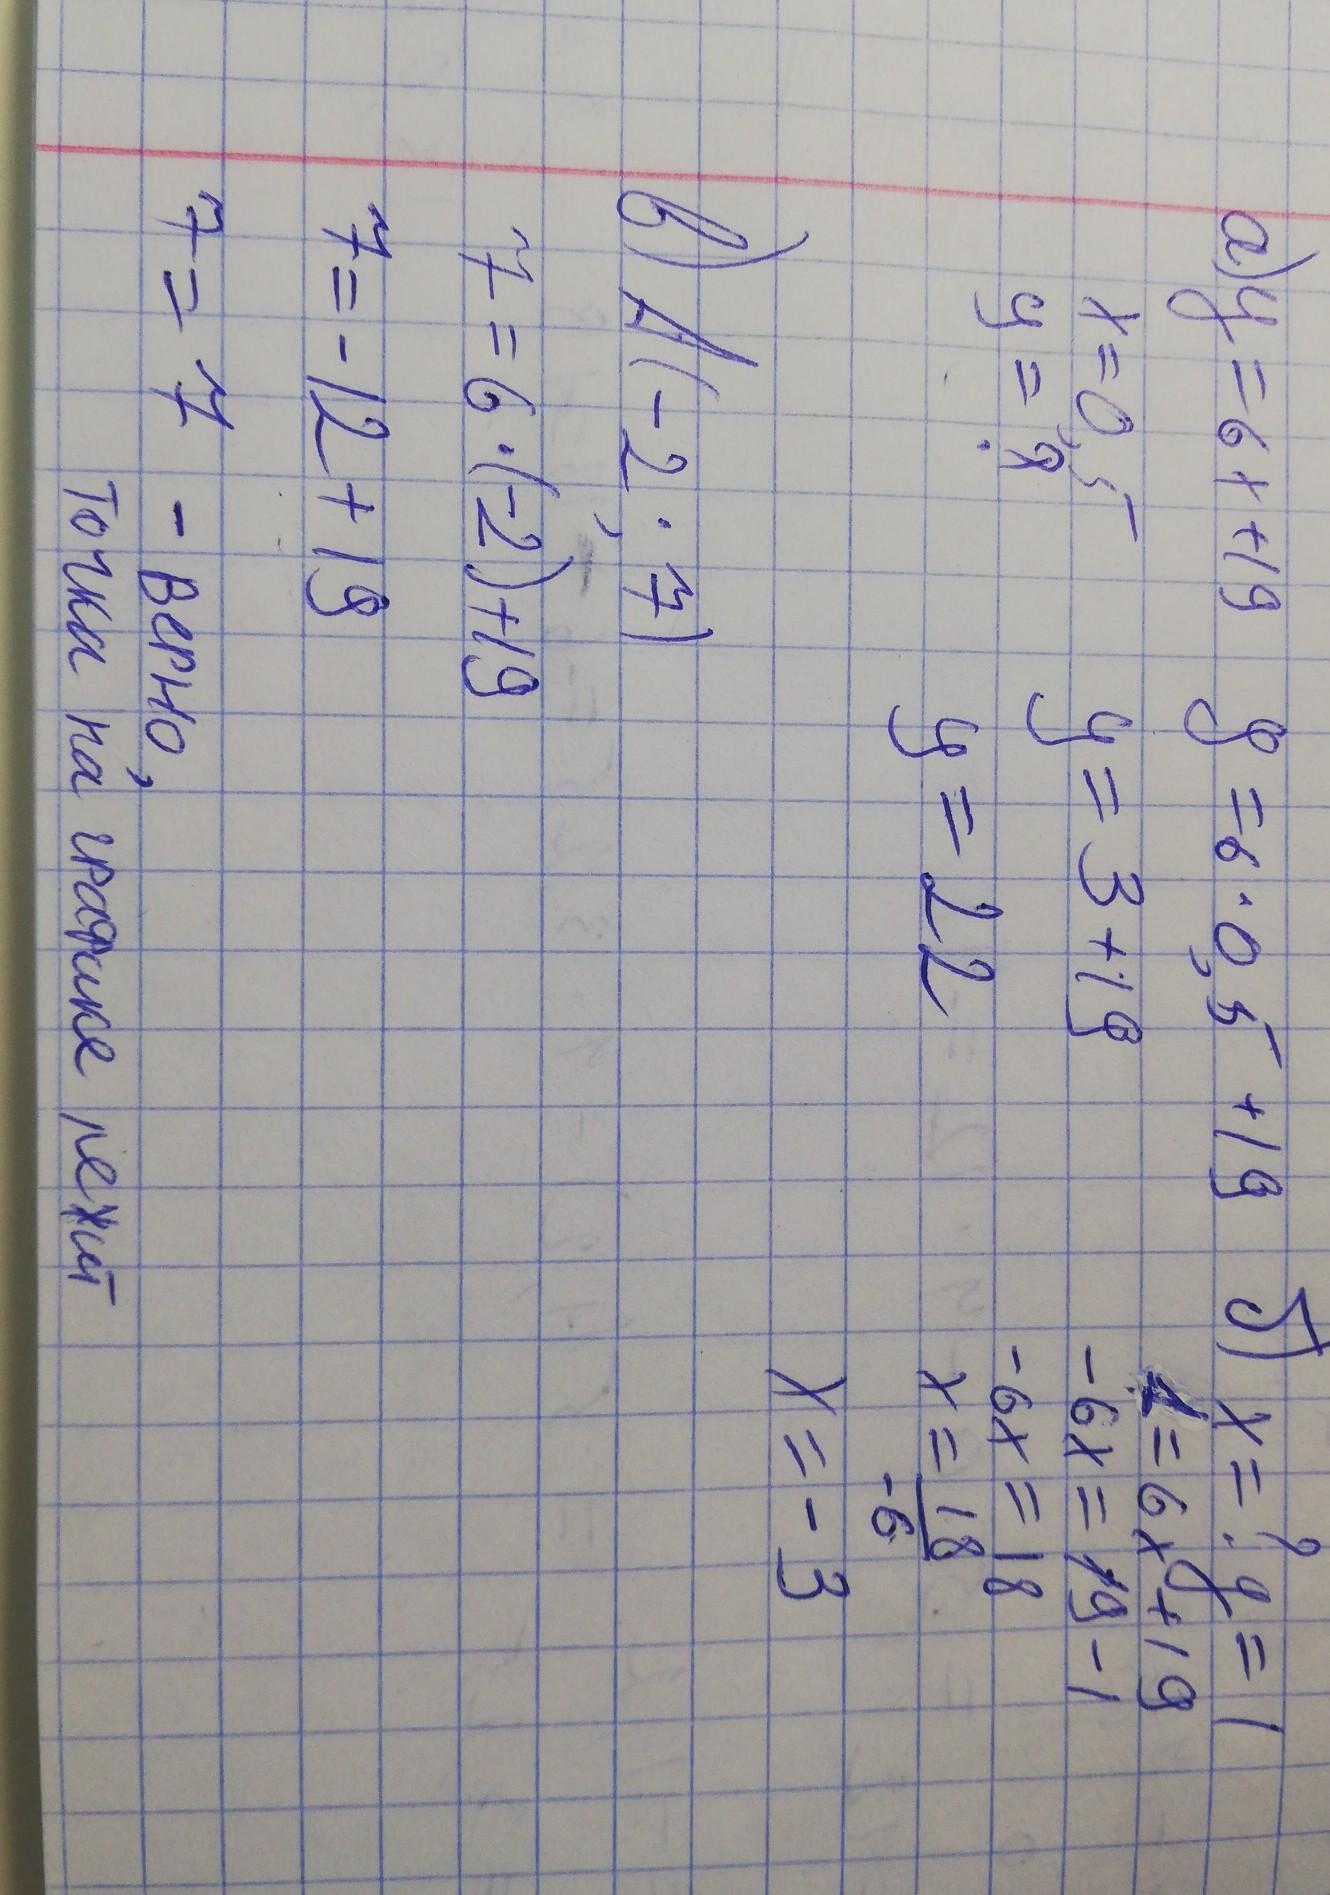 а) y = 6x+19
x = 0,5
y = ?
y = 6·0,5 +19
y = 3+19
y = 22
б) x = ? y = 1
1 = 6x+19
-6x = 19-1
-6x = 18
x = 18/-6
x = -3
в) А(-2; 7)
7 = 6·(-2)+19
7 = -12+19
7 = 7 - верно,
точка на графике лежит